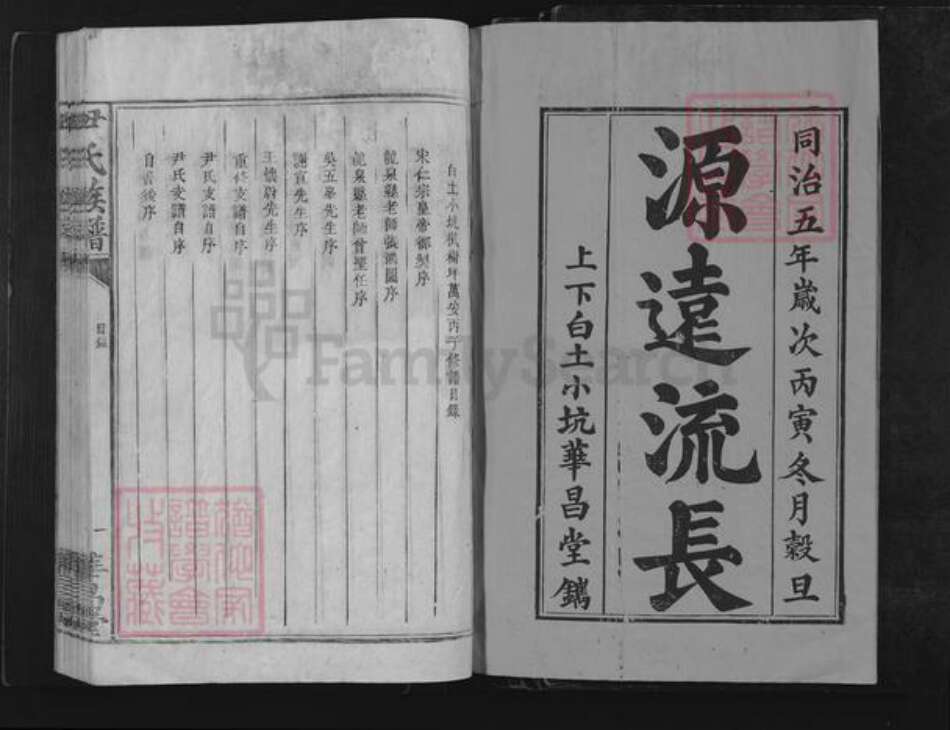 同治五年歲次丙寅冬月穀旦
源遠流長
上下白土小坑華昌堂鐫
白土小坑楓樹坪萬安丙丁修譜目錄
宋仁宗皇帝御製序
龍泉縣老師張鴻圖序
龍泉縣老師曾聖任序
吳五峯先生序
謝宣先生序
王懋尉先生序
重修支譜自序
尹氏支譜自序
尹氏支譜自序
自書後序
尹氏族譜
目錄
一
華昌堂
譜學會
收藏
FamilySearch